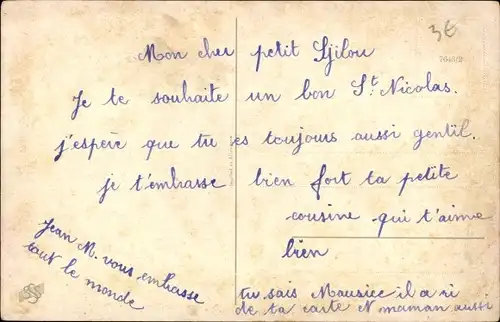 3€
7048/B
Mon cher petit Djilou
Je te souhaite un bon St. Nicolas.
j'espère que tu es toujours aussi gentil.
je t'embrasse bien fort ta petite
cousine qui t'aime
bien
Jean M. vous embrasse
tout le monde
tu sais Maurice il a ri
de ta carte et maman aussi